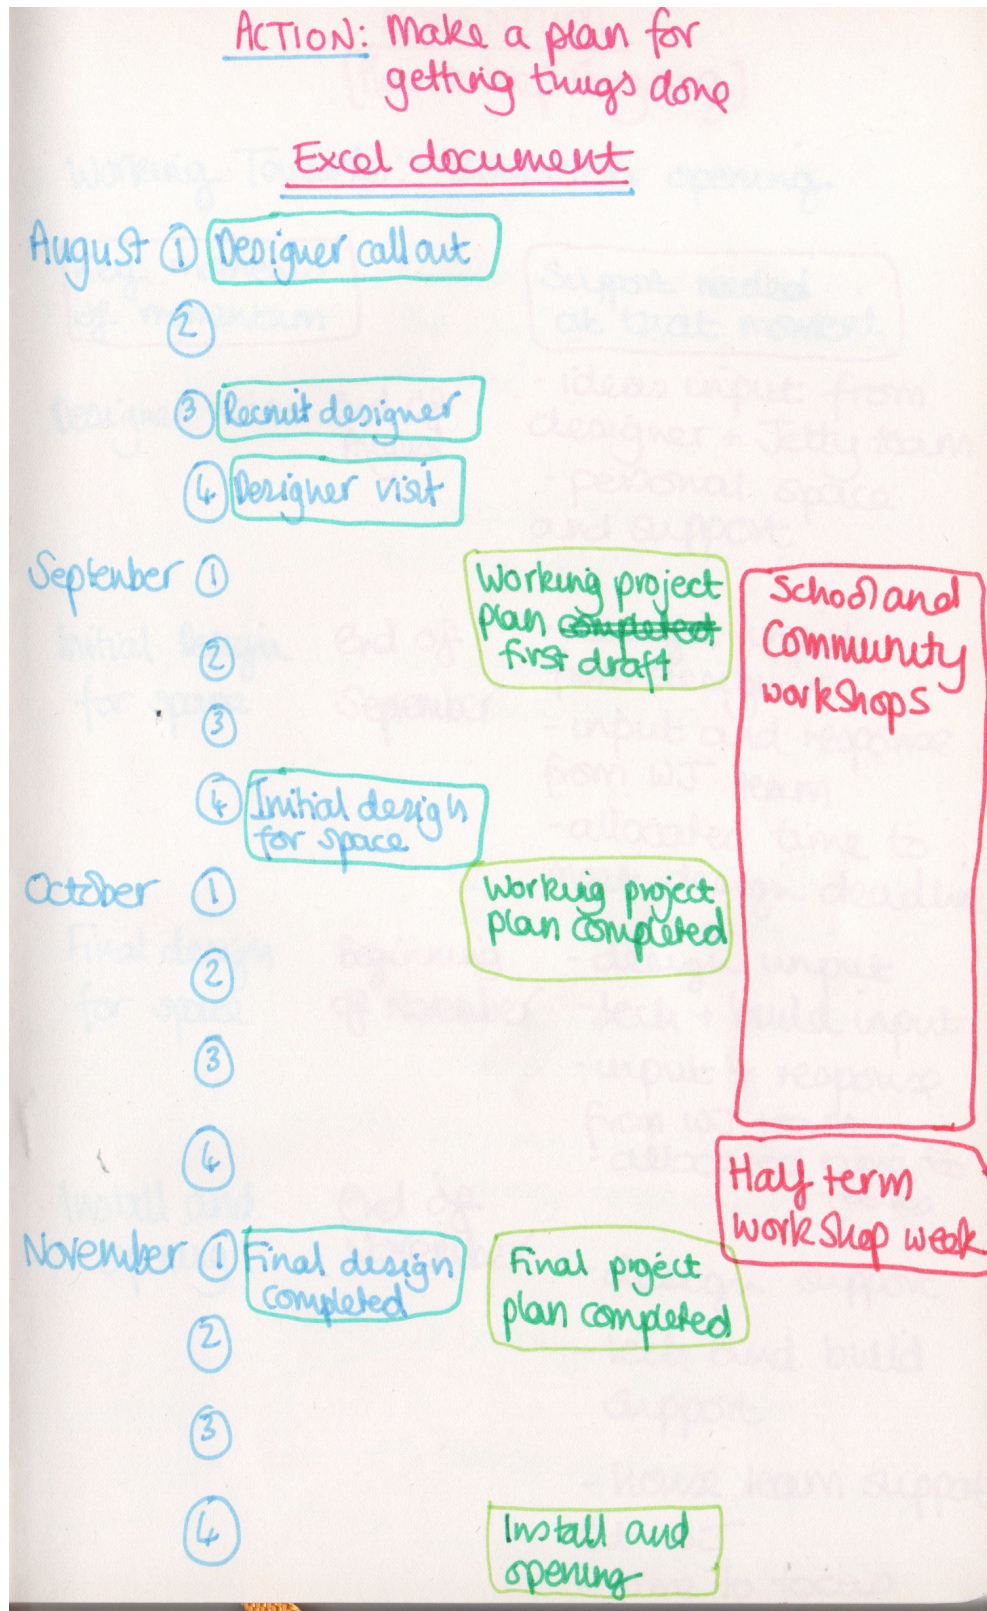 ACTION: Make a plan for
getting things done
Excel document
August 1 Designer call out
2
3 Recruit designer
4 Designer visit
September 1
Working project
plan completed
first draft
School and
Community
workshops
2
3
4 Initial design
for space
October 1
Working project
plan completed
2
3
4
Half term
workshop week
November 1 Final design
completed
Final project
plan completed
2
3
4
Install and
opening